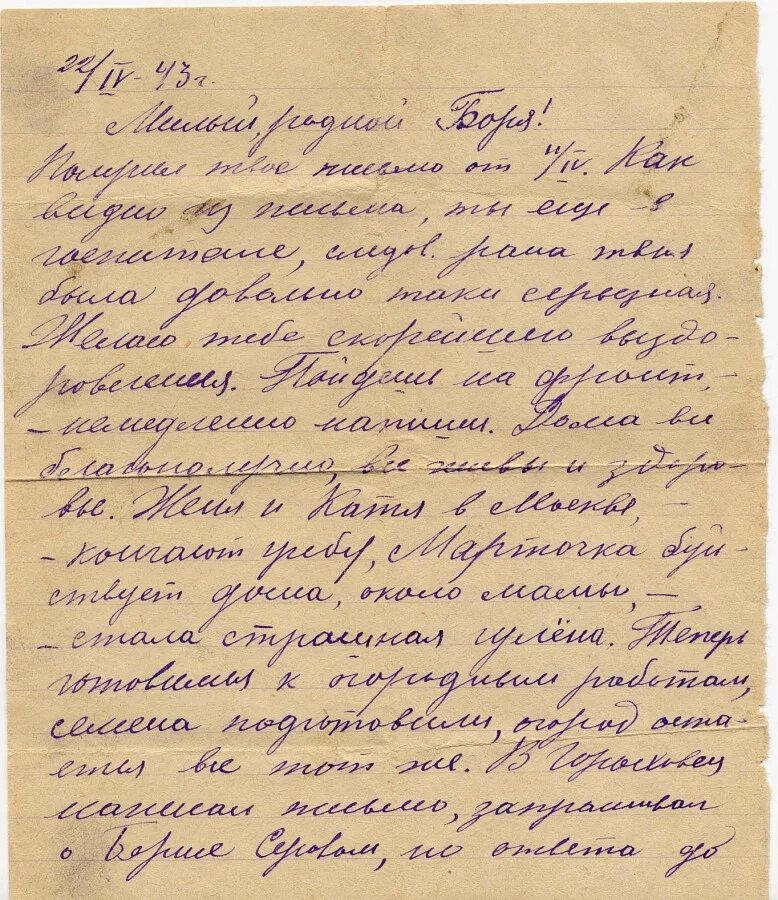 22/IV-43 г.
Милый, родной Боря!
Получил твое письмо от 11/IV. Как
видно из письма, ты еще в
госпитале, следов. рана твоя
была довольно таки серьезная.
Желаю тебе скорейшего выздо-
ровления. Пойдешь на фронт, -
- немедленно напиши. Дома все
благополучно, все живы и здоро-
вы. Женя и Катя в Москве, -
- кончают учебу, Марточка буй-
ствует дома, около мамы, -
- стала страшная гулёна. Теперь
готовимся к огородным работам,
семена подготовили, огород оста-
ется все тот же. В Гороховец
написал письмо, запрашивал
о Борисе Серовом, но ответа до